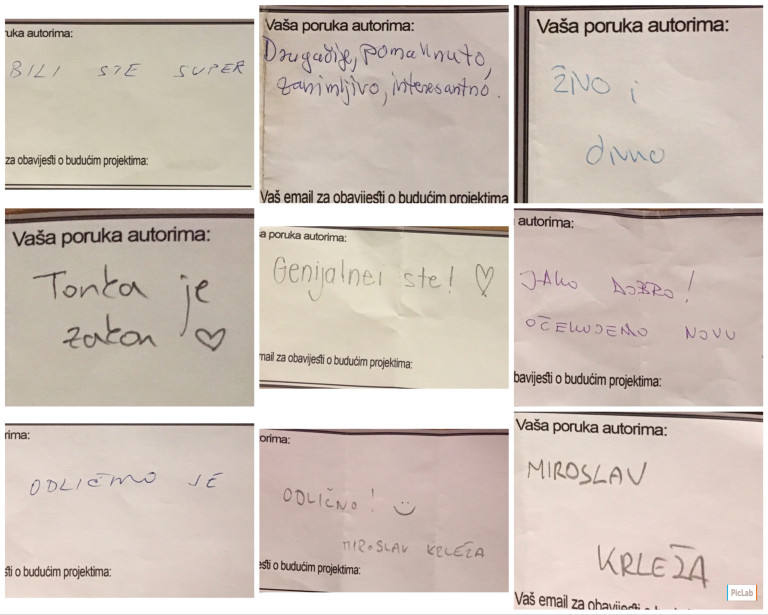 uka autorima:
BILI STE SUPER
za obavijesti o budućim projektima:
Vaša poruka autorima:
Drugačije, pomaknuto,
zanimljivo, interesantno.
Vaš email za obavijesti o budućim projektima
Vaša poruka autorima:
ŽIVO i
divno
Vaša poruka autorima:
Tonka je
zakon ♡
a poruka autorima:
Genijalnei ste! ♡
mail za obavijesti o budućim projektima:
autorima:
JAKO DOBRO!
OČEKUJEMO NOVU
bavijesti o budućim projektima:
rima:
ODLIČNO JE
sti o budućim projektima:
orima:
ODLIČNO! :)
MIROSLAV KRLEŽA
esti o budućim projektima:
Vaša poruka autorima:
MIROSLAV
KRLEŽA
Vaš email za obavijesti o budućim
PicLab